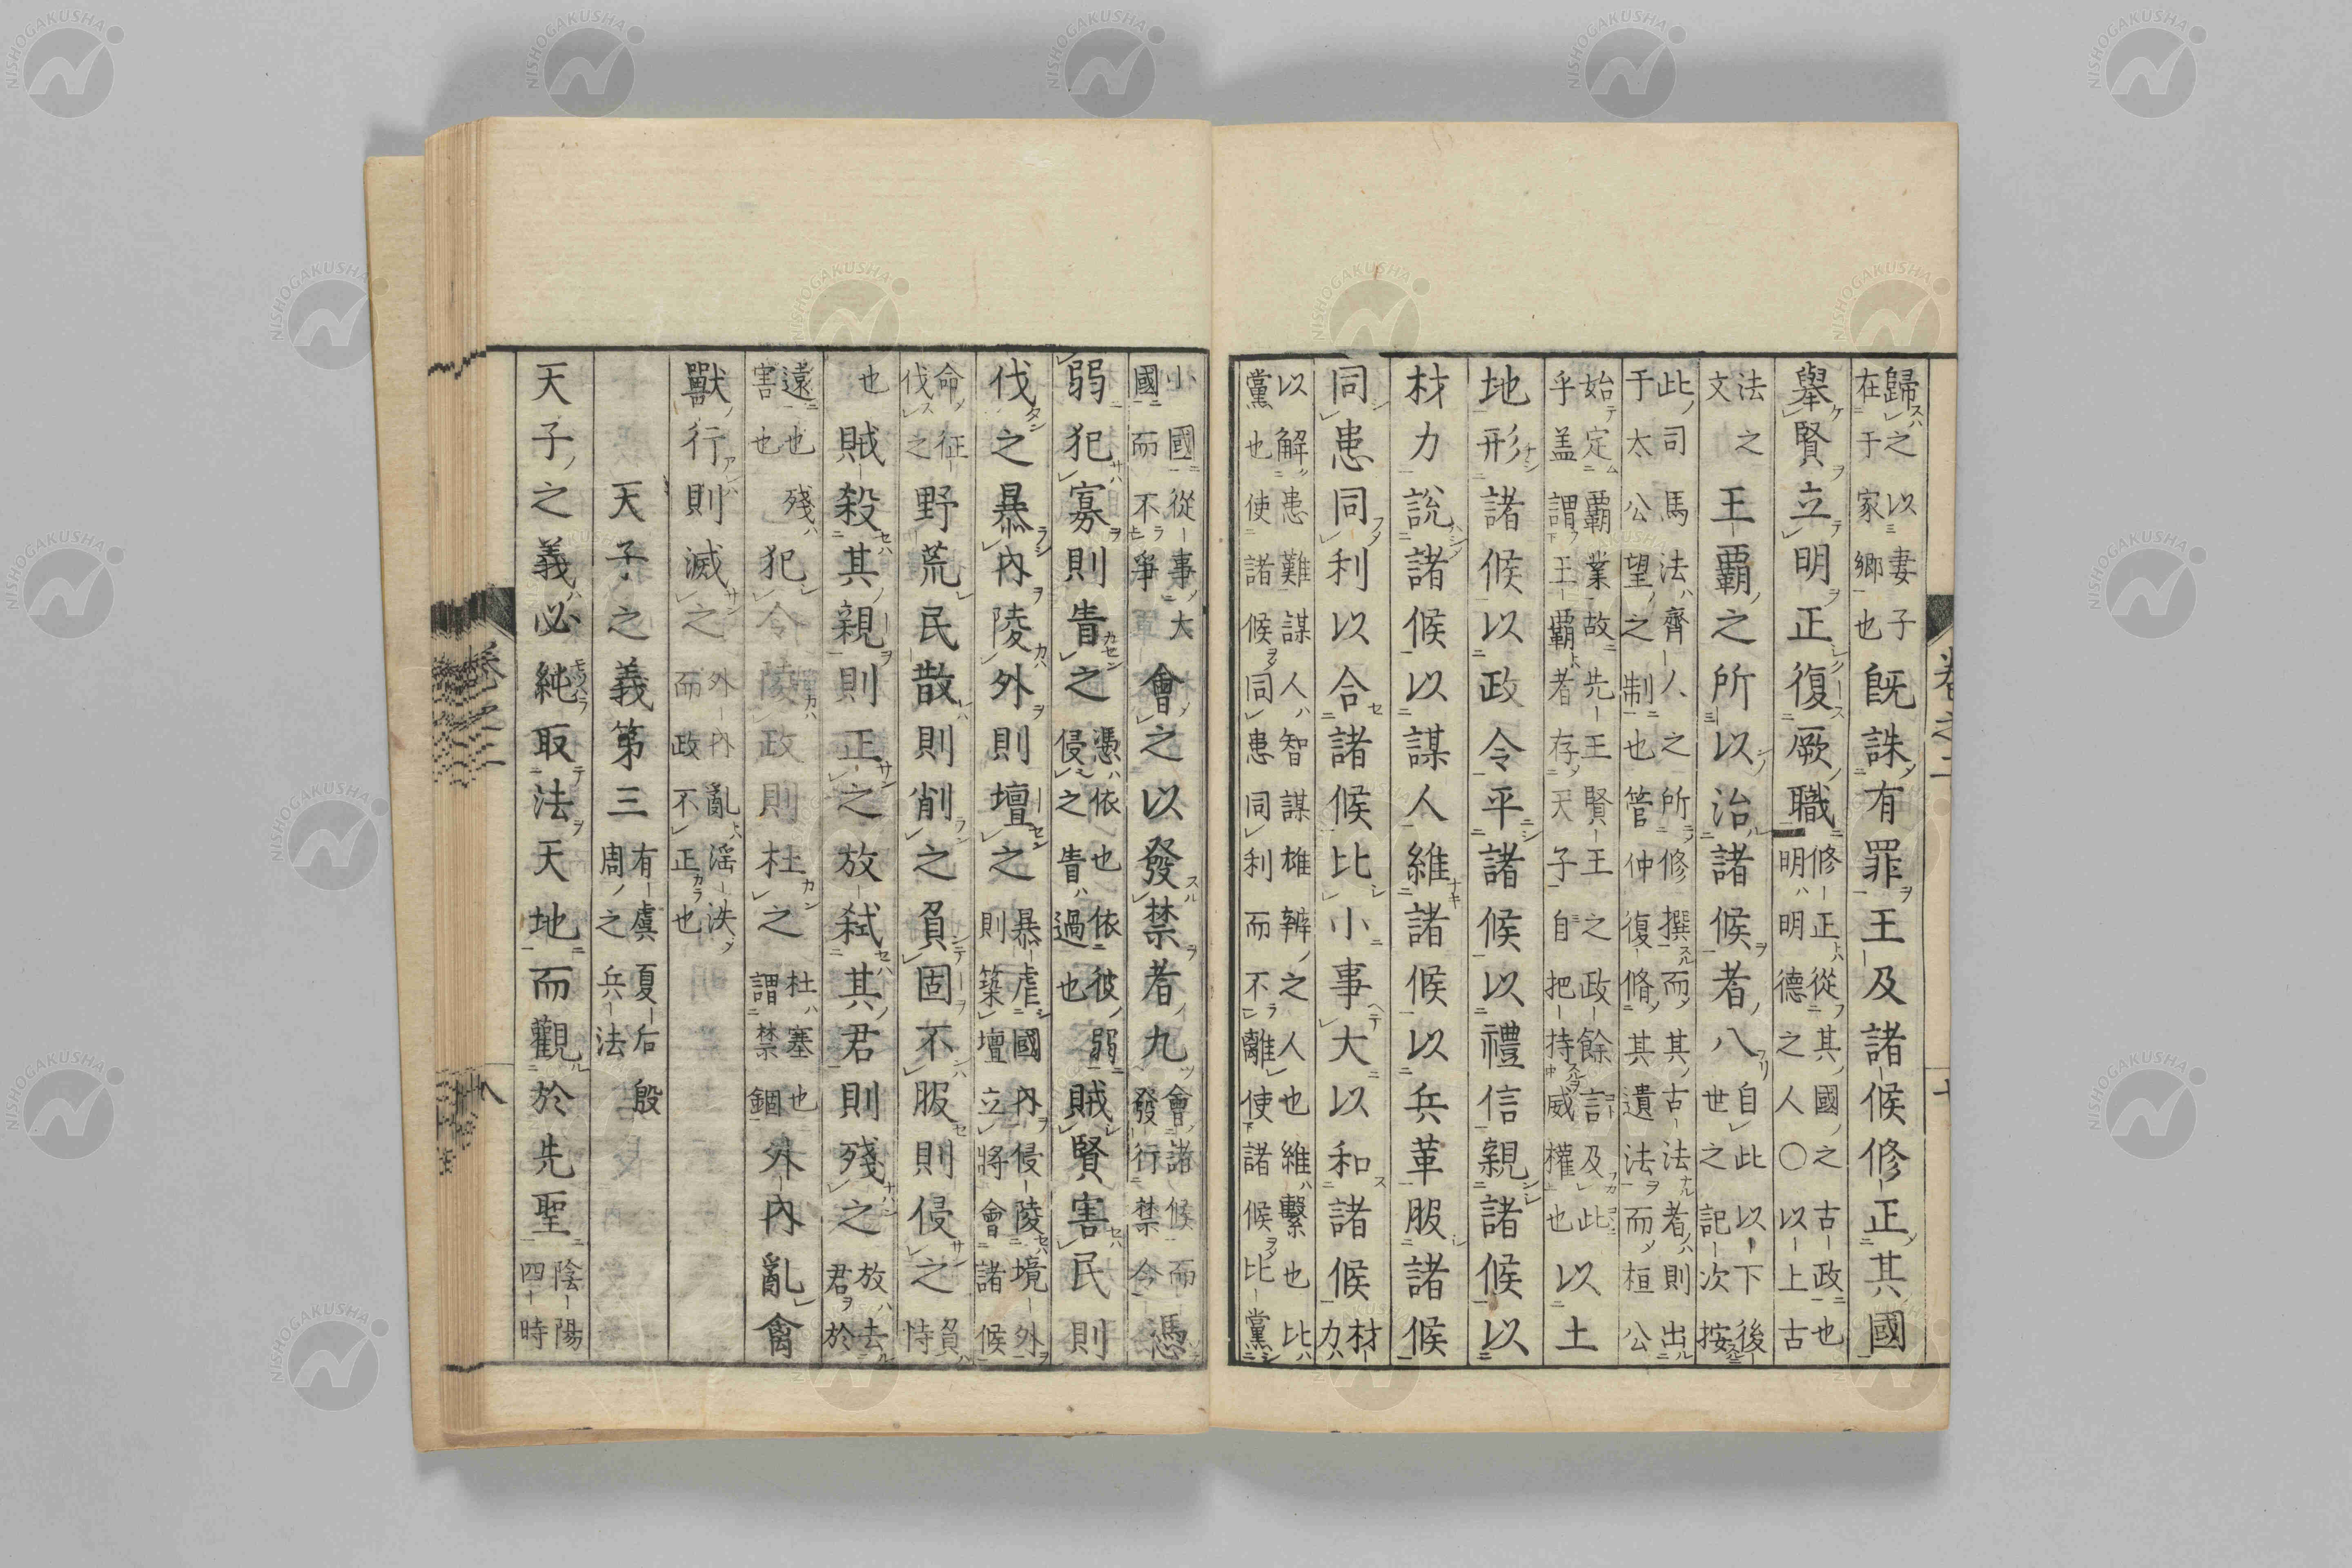 卷之二
歸之以妻子
在于家鄉也
既誅有罪王及諸候修正其國
舉賢立明正復厥職
修正從其國之古政也
明明德之人〇以上古
法之
文
王覇之所以治諸候者八
自此以下後
世之記次按
此司馬法齊人之所修撰而其古法者則出
于太公望之制也管仲復脩其遺法而桓公
始定覇業故先王賢王之政餘言及此
乎盖謂王覇者存天子自把持威權也
以土
地形諸候以政令平諸候以禮信親諸候以
材力說諸候以謀人維諸候以兵革服諸候
同患同利以合諸候比小事大以和諸候
材
力
以解患難謀人智謀雄辨之人也維繫也比
黨也使諸候同患同利而不離使諸候比黨
小國從事大
國而不爭
會之以發禁者九
會諸候而
發行禁令
憑
弱犯寡則眚之
憑依也依彼弱
侵之眚過也
賊賢害民則
伐之暴內陵外則壇之
暴虐國內侵陵境外
則築壇立將會諸候
命征
伐之
野荒民散則削之負固不服則侵之
負
恃
也
賊殺其親則正之放弑其君則殘之
放去
君於
遠也殘
害也
犯令陵政則杜之
杜塞也
謂禁錮
外內亂禽
獸行則滅之
外內亂淫泆
而政不正也
天子之義第三
有虞夏后殷
周之兵法
天子之義必純取法天地而觀於先聖
陰陽
四時
卷之二
八
NISHOGAKUSHA